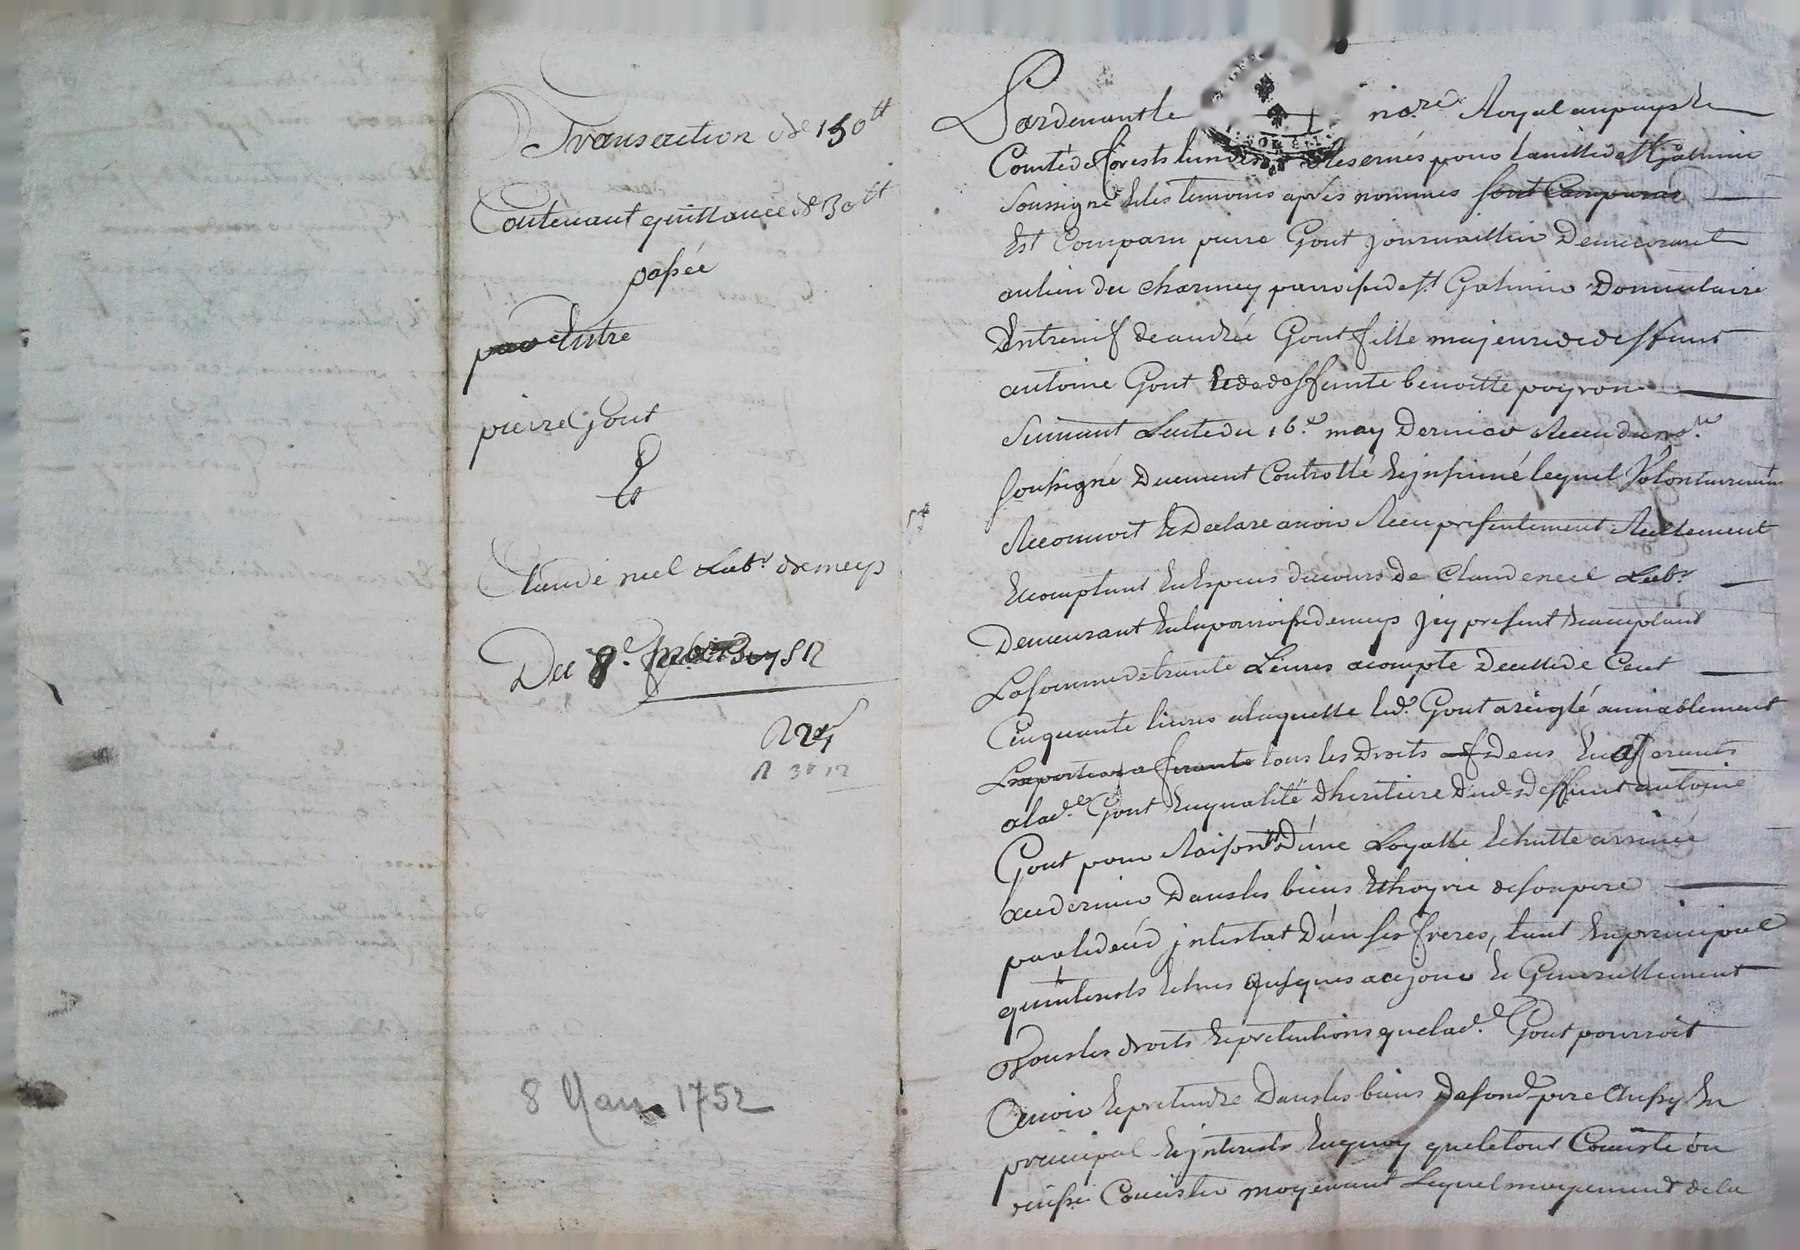 Transaction de 150tt
Contenant quittance de 30tt
passée
par Entre
pierre Gout
Et
Claude neel Labr. de meys
Du 8e mars 1752
R 24s
8 Mars 1752
Pardevant le no.re Royal au pays Et
Comté de forests pour la ville de st Galmier
Soussigné Et les temoins après nommés sont Comparus
Est Comparu pierre Gout journaillier Demeurant
au lieu du charmey parroisse de st Galmier Donnataire
Entrenifs de andrée Gout fille majeure de deffunt
antoine Gout Et de deffunte benoitte poyron
Suivant Lacte du 16.e may Dernier Receu du no.re
soussigné Duement Controllé Et jnsinué lequel Volontairement
Reconnoit Et Declare avoir Receu presentement Reellement
Et comptant En Especes du cours de Claude neel Labr
Demeurant En la parroisse de meys jcy present Et acceptant
La somme de trante Livres acompte De celle de Cent
Cinquante livres a laquelle led. Gout a reiglé amiablement
La portion aferante tous les Droits Et afferants
a lad.e Gout En qualité d'heritiere Dud. deffunt antoine
Gout pour Raison D'une Loyalle Echutte arrivée
au dernier Dans les biens Et hoyrie de son pere
par le decéd jntestat D'un ses freres, tant En principal
qu'interests Echus jusques a ce jour Et Generallement
Tous les droits Et pretentions que lad.e Gout pourroit
avoir Et pretendre Dans les biens de son d. pere aussy En
principal Et jnterests En quoy que le tout Consiste ou
puisse Consister moyenant Lequel mayement de la